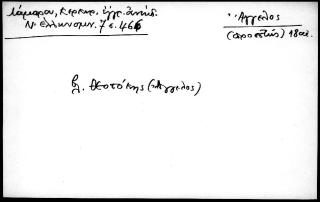 Λάμπρου, Κερκυρ. ἔγγρ. ἀνέκδ.
Ν. Ἑλληνομν. 7 σ. 466
Ἄγγελος
(αροστής) 18 αἰ.
βλ. Θεοτόκης (Ἄγγελος)